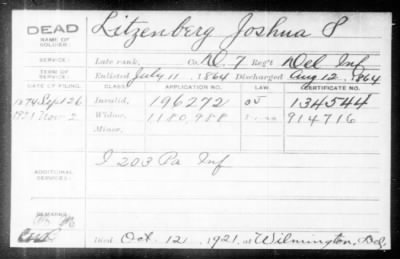 DEAD Litzenberg Joshua P
NAME OF SOLDIER:
SERVICE: Late rank, Co. D. 7 Reg't Del Inf
TERM OF SERVICE: Enlisted July 11 1864 Discharged Aug 12, 1864
DATE OF FILING. CLASS. APPLICATION NO. LAW. CERTIFICATE NO.
1874 Sept 26 Invalid, 196272 134544
1921 Nov 2 Widow, 1180,988 914716
Minor,
I 203 Pa Inf
ADDITIONAL SERVICES:
REMARKS:
Died Oct. 12, 1921, at Wilmington, Del,